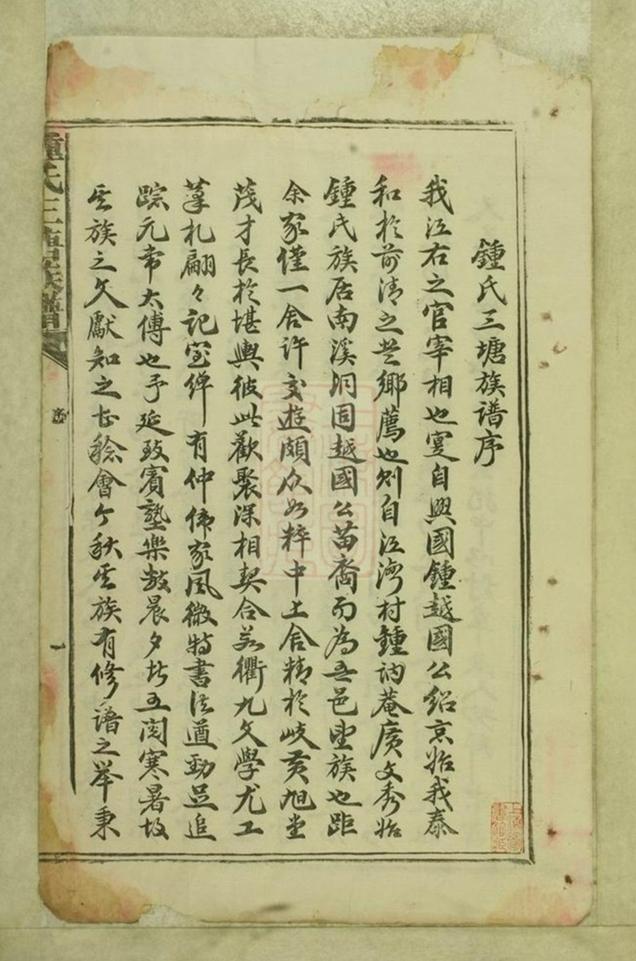 鍾氏三塘族譜序
我江右之官宰相也寔自興國鍾越國公紹京始我泰
和於前清之登鄉薦也則自江灣村鍾訥菴廣文秀始
鍾氏族居南溪洞固越國公苗裔而為吾邑望族也距
余家僅一舍許交遊頗众如粹中上舍精於岐黄旭堂
茂才長於堪輿彼此歡聚深相契合若衢九文學尤工
草札翩々記室綽有仲偉家風微特書法遒勁足追
踪元常太傅也予延致賓塾樂數晨夕於五閱寒暑故
其族之文獻知之甚稔會今秋其族有修譜之举秉
鍾氏三塘族譜
序
一